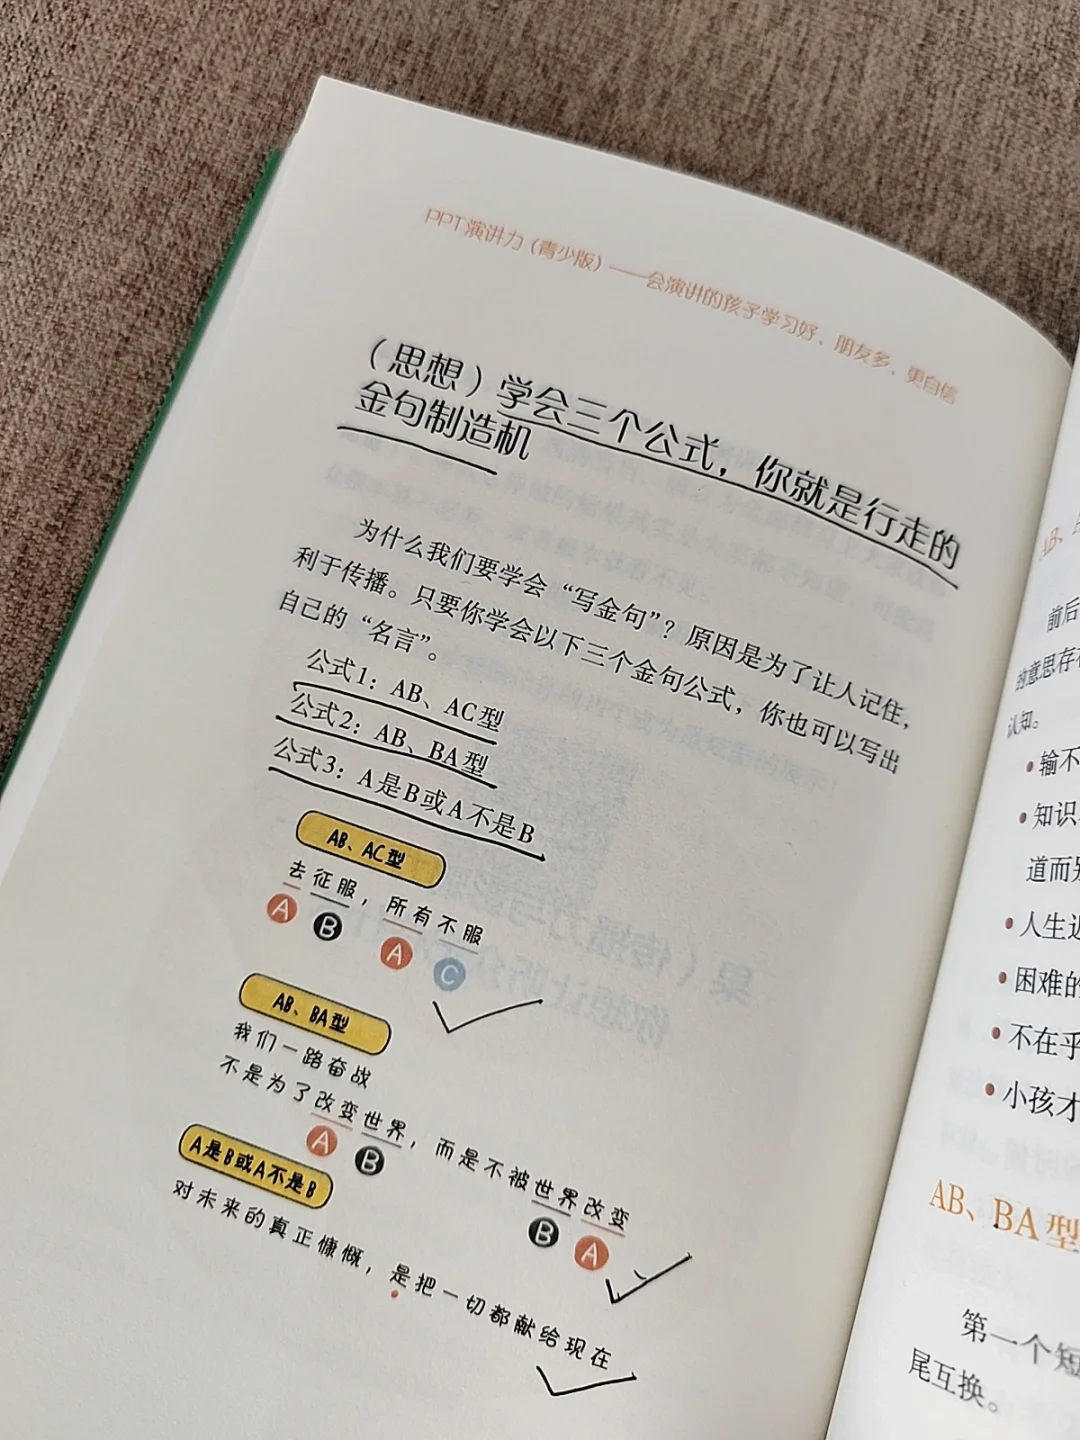 PPT演讲力（青少版）——会演讲的孩子学习好、朋友多、更自信
（思想）学会三个公式，你就是行走的
金句制造机
为什么我们要学会“写金句”？原因是为了让人记住，
利于传播。只要你学会以下三个金句公式，你也可以写出
自己的“名言”。
公式1：AB、AC型
公式2：AB、BA型
公式3：A是B或A不是B
AB、AC型
去征服，所有不服
A B A C
AB、BA型
我们一路奋战
不是为了改变世界，而是不被世界改变
A B B A
A是B或A不是B
对未来的真正慷慨，是把一切都献给现在
AB、
前后
的意思存在
认知。
输不
知识
道而
人生
困难的
不在乎
小孩才
AB、BA型
第一个短
尾互换。